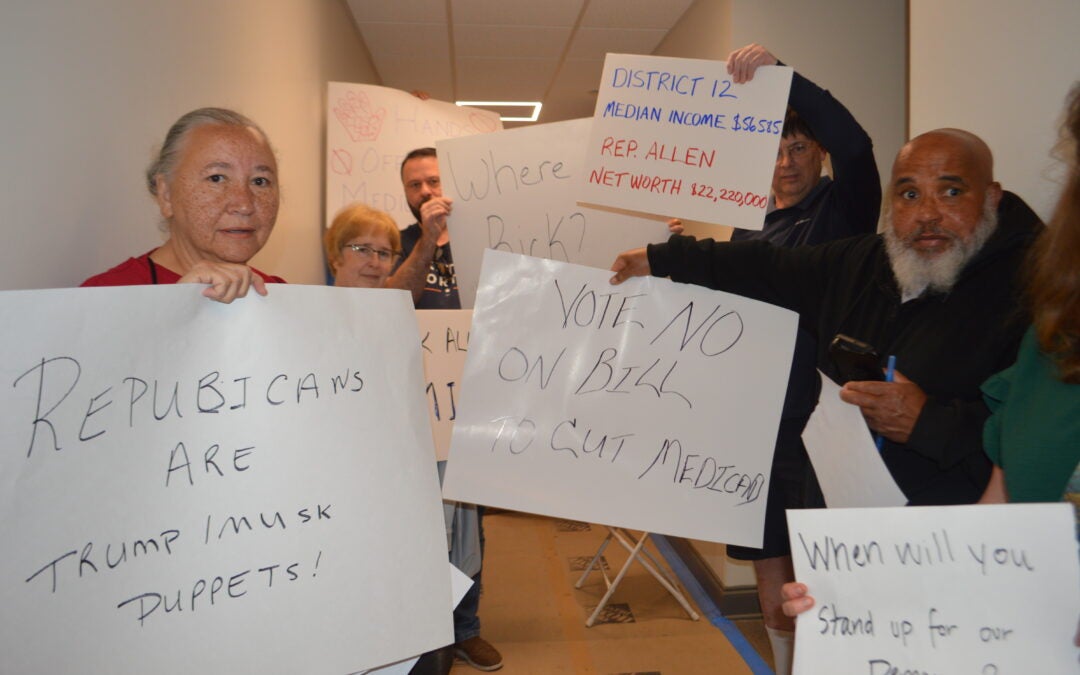 HANDS
OFF
MEDI
Where
Rick?
DISTRICT 12
MEDIAN INCOME $56585
REP. ALLEN
NET WORTH $22,220,000
REPUBICANS
ARE
TRUMP/MUSK
PUPPETS!
K ALL
MI
VOTE NO
ON BILL
TO GUT MEDICAID
When will you
Stand up for our